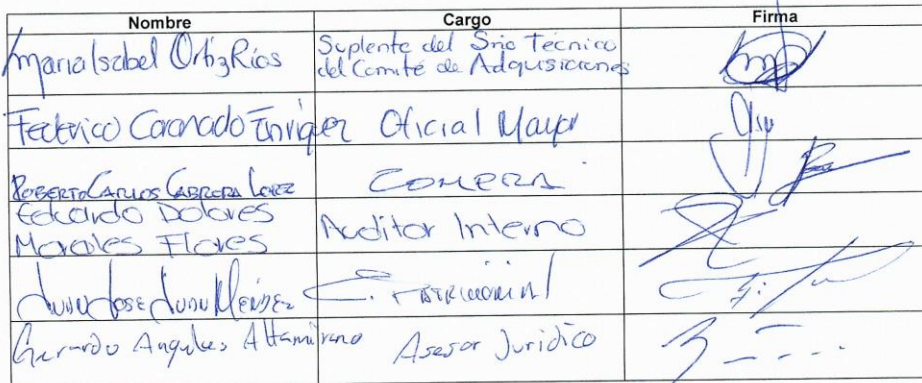 Nombre Cargo Firma
Maria Isabel Ortiz Rios Suplente del Srio Técnico
del Comité de Adquisiciones
Federico Coronado Enriquez Oficial Mayor
ROBERTO CARLOS CABRERA LOPEZ
Eduardo Dolores
Morales Flores Auditor Interno
Juan Jose C. PATRIMONIAL
Gerardo Angeles Altamirano Asesor Jurídico